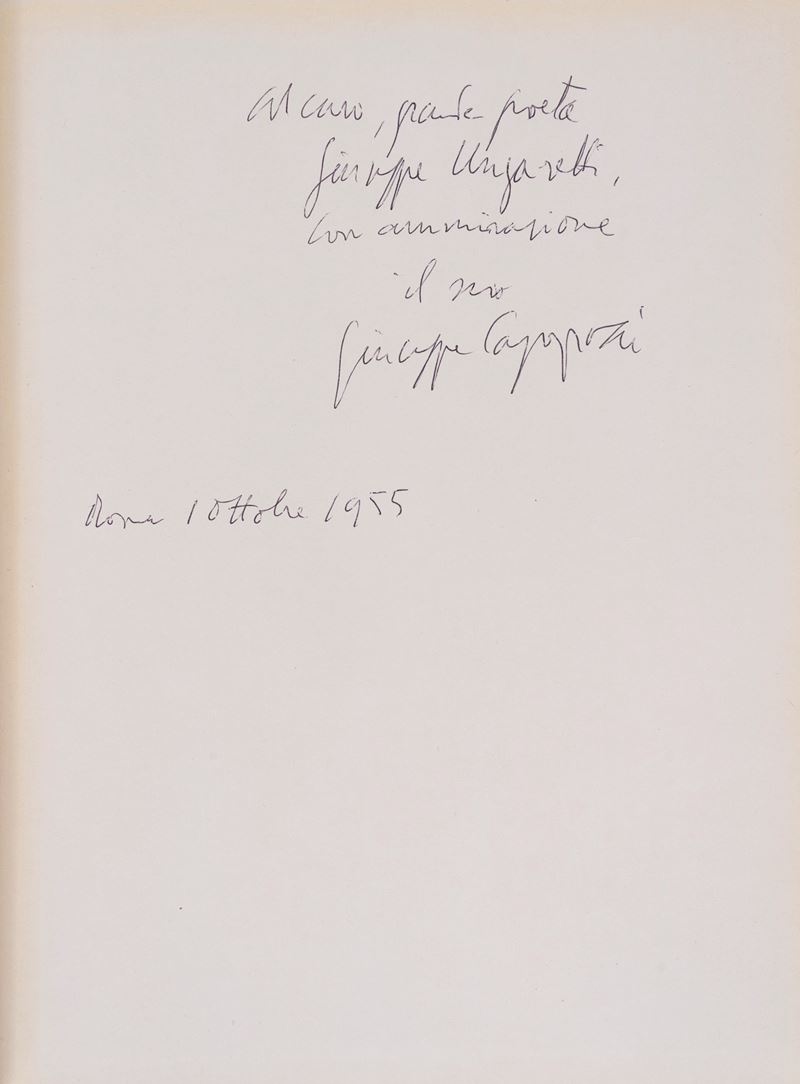 al caro, grande poeta
Giuseppe Ungaretti,
con ammirazione
il suo
Giuseppe Capogrossi
Roma 1 Ottobre 1955